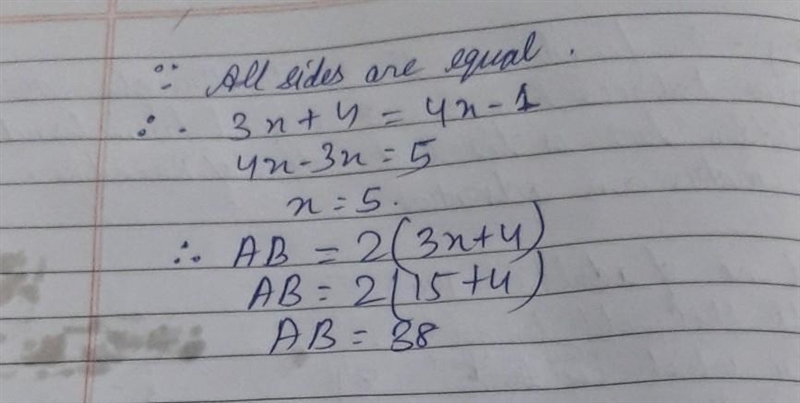 ∵ All sides are equal.
∴ 3x+4 = 4x-1
4x-3x = 5
x = 5.
∴ AB = 2(3x+4)
AB = 2(15+4)
AB = 38